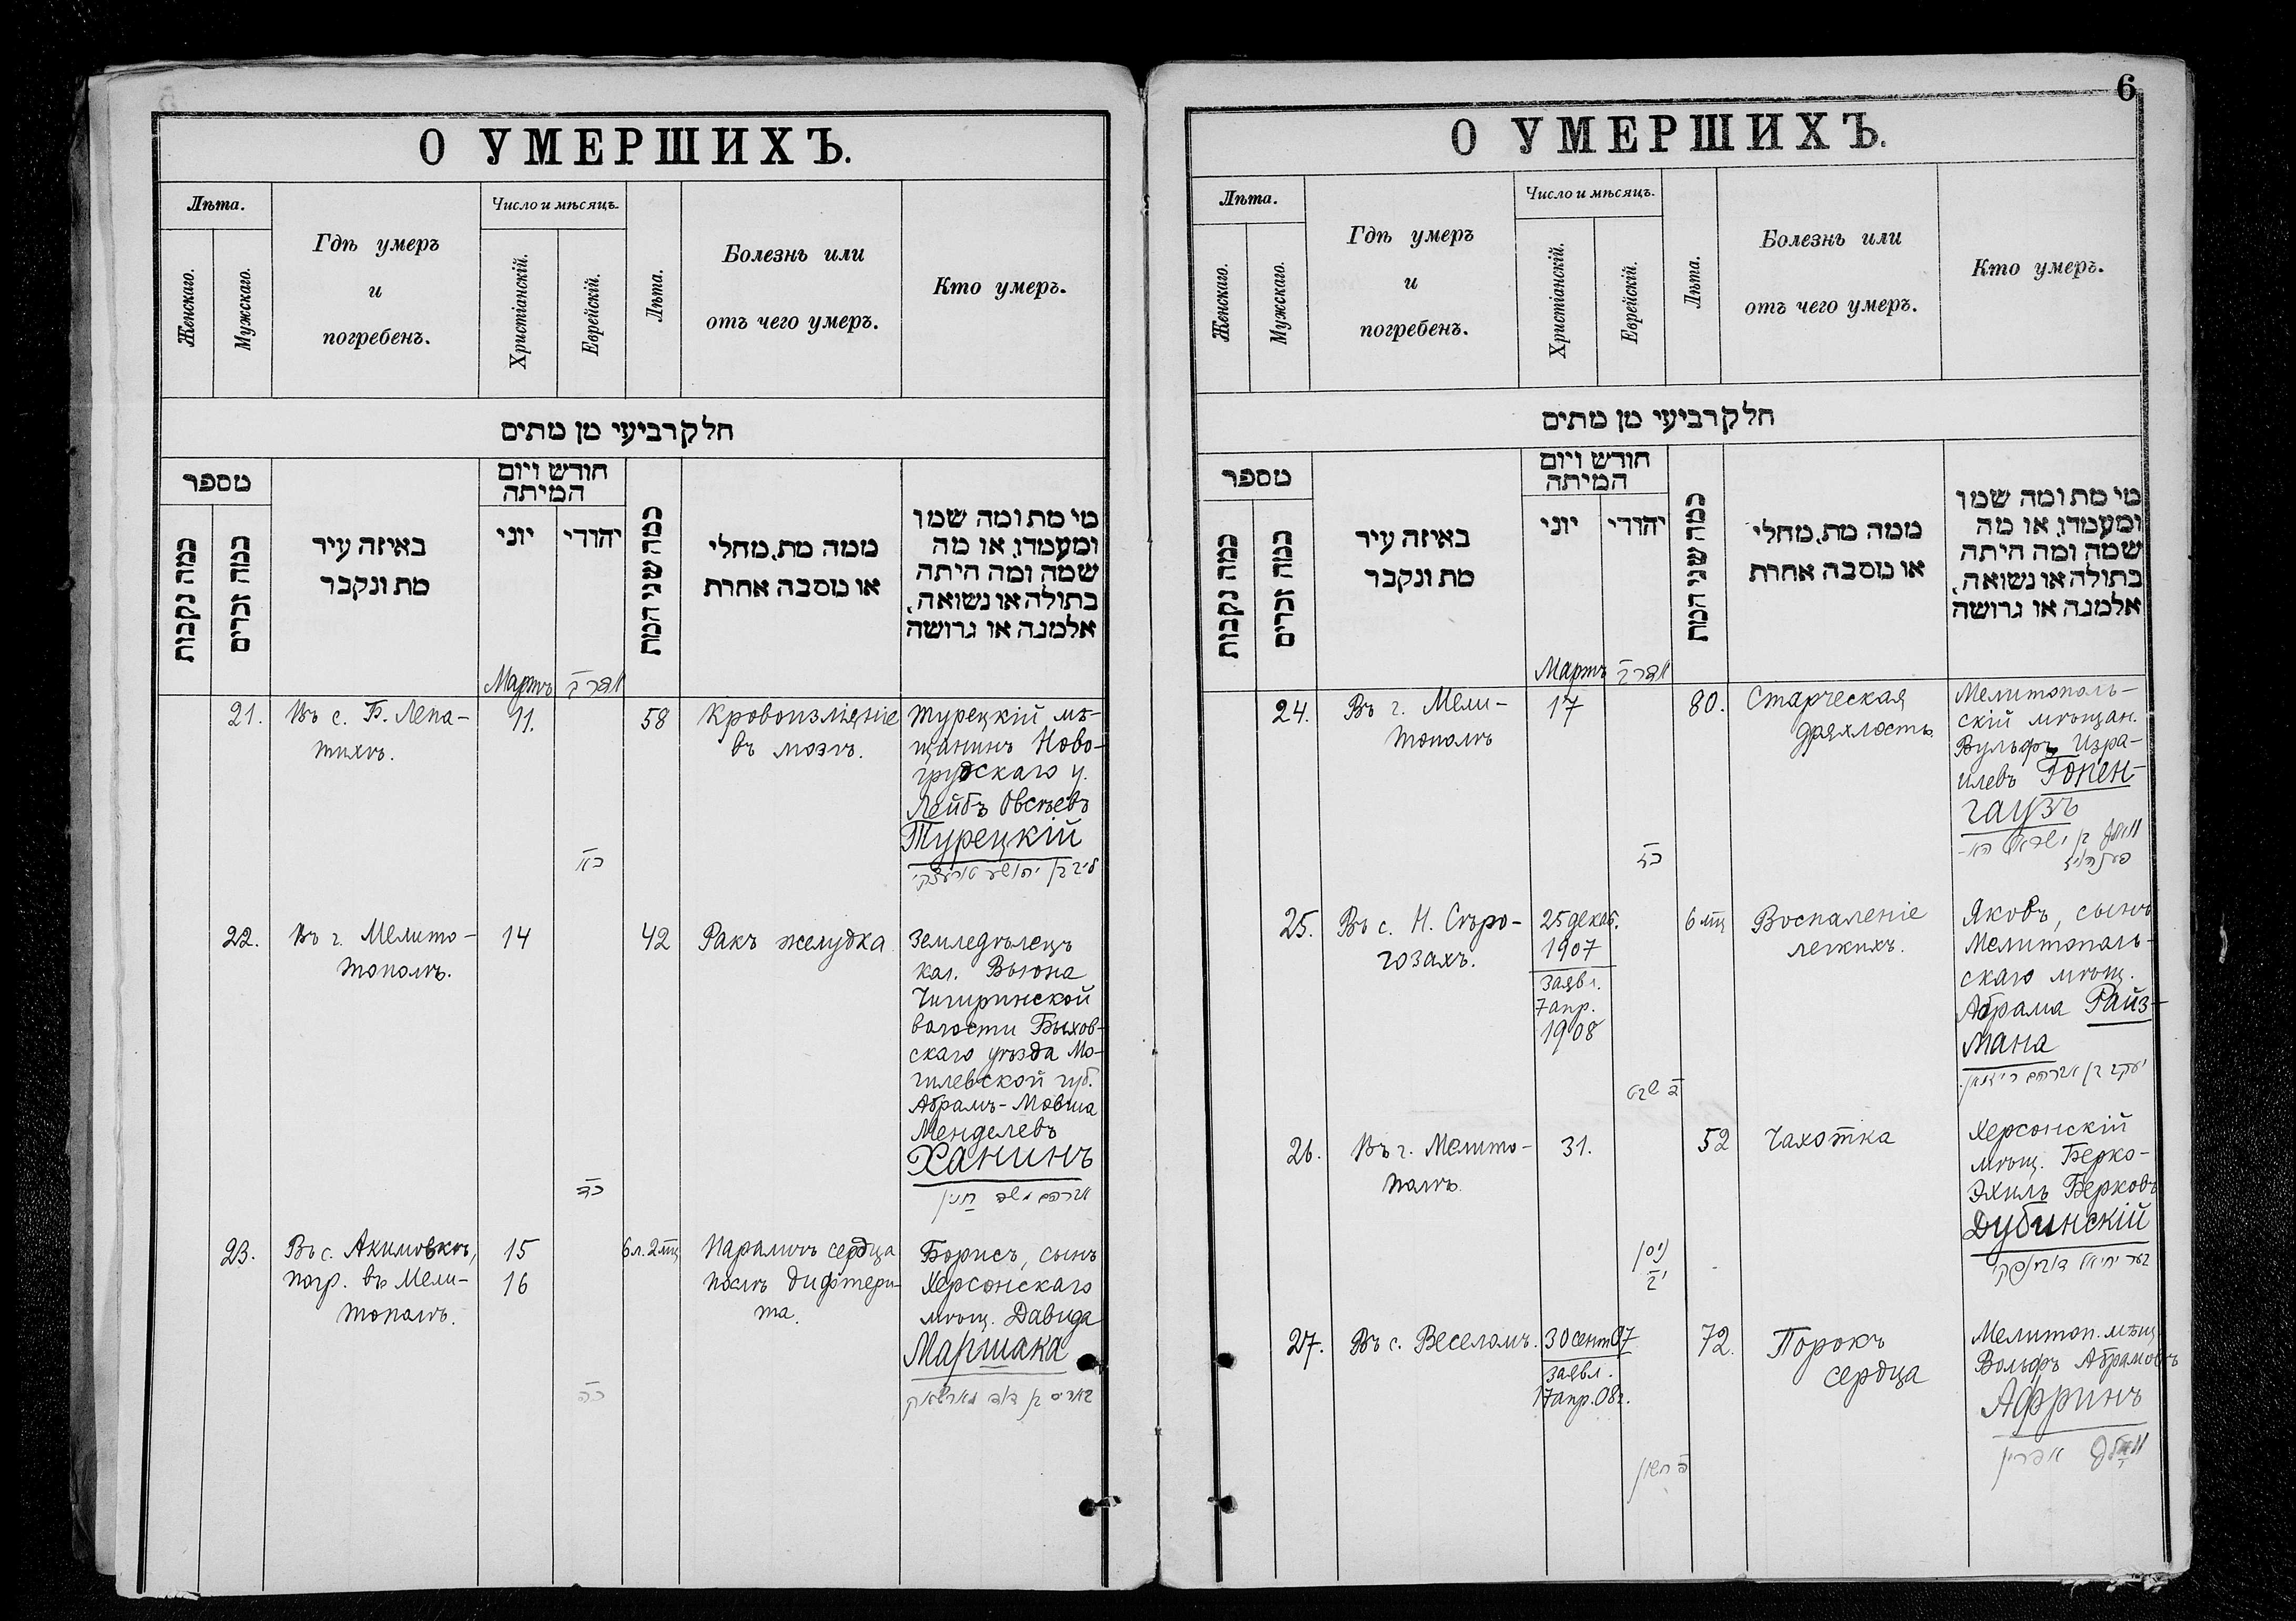 6
О УМЕРШИХЪ.
Лѣта.
Женскаго.
Мужскаго.
Гдѣ умеръ
и
погребенъ.
Число и мѣсяцъ.
Христіанскій.
Еврейскій.
Лѣта.
Болезнь или
отъ чего умеръ.
Кто умеръ.
חלק רביעי מן מתים
מספר
כמה נקבות
כמה זכרים
באיזה עיר
מת ונקבר
חודש ויום
המיתה
יוני
יהודי
כמה שני המת
ממה מת, מחלי
או מסבה אחרת
מי מת ומה שמו
ומעמדו, או מה
שמה ומה היתה
בתולה או נשואה,
אלמנה או גרושה
Мартъ
21.
Въ с. Б. Лепа-
тихѣ.
11.
כא
58
Кровоизліяніе
въ мозгъ.
Турецкій мѣ-
щанинъ Ново-
грудскаго у.
Лейбъ Овсѣевъ
Турецкій
22.
Въ г. Мелито-
тополѣ.
14
כד
42
Ракъ желудка
Земледѣлецъ
кол. Вьюна
Чигиринской
волости Быхов-
скаго уѣзда Мо-
гилевской губ.
Абрамъ-Мовша
Менделевъ
Ханинъ
אברהם משה חנין
23.
Въ с. Акимовкѣ,
погр. въ Мели-
тополѣ.
15
16
כה
6 л. 2 мц
Параличъ сердца
послѣ дифтери-
та.
Борисъ, сынъ
Херсонскаго
мѣщ. Давида
Маршака
О УМЕРШИХЪ.
Лѣта.
Женскаго.
Мужскаго.
Гдѣ умеръ
и
погребенъ.
Число и мѣсяцъ.
Христіанскій.
Еврейскій.
Лѣта.
Болезнь или
отъ чего умеръ.
Кто умеръ.
חלק רביעי מן מתים
מספר
כמה נקבות
כמה זכרים
באיזה עיר
מת ונקבר
חודש ויום
המיתה
יוני
יהודי
כמה שני המת
ממה מת, מחלי
או מסבה אחרת
מי מת ומה שמו
ומעמדו, או מה
שמה ומה היתה
בתולה או נשואה,
אלמנה או גרושה
Мартъ
24.
Въ г. Мели-
тополѣ
17
80.
Старческая
дряхлость
Мелитополь-
скій мѣщан.
Вульфъ Изра-
илевъ Гопен-
гаузъ
25.
Въ с. Н. Сѣро-
гозахъ.
25 декаб.
1907
заявл.
7 апр.
1908
ב שבט
6 мц
Воспаленіе
легкихъ.
Яковъ, сынъ
Мелитополь-
скаго мѣщ.
Абрама Райз-
мана
יעקב בן אברהם רייזמאן
26.
Въ г. Мелито-
полѣ.
31.
ניסן
52
Чахотка
Херсонскій
мѣщ. Берко-
Эхиль Берковъ
Дубинскій
בער יחיאל דובינסקי
27.
Въ с. Веселомъ.
30 сент 07
заявл.
17 апр. 08 г.
72.
Порокъ
сердца
Мелитоп. мѣщ
Вольфъ Абрамовъ
Афринъ
וואלף אפרין